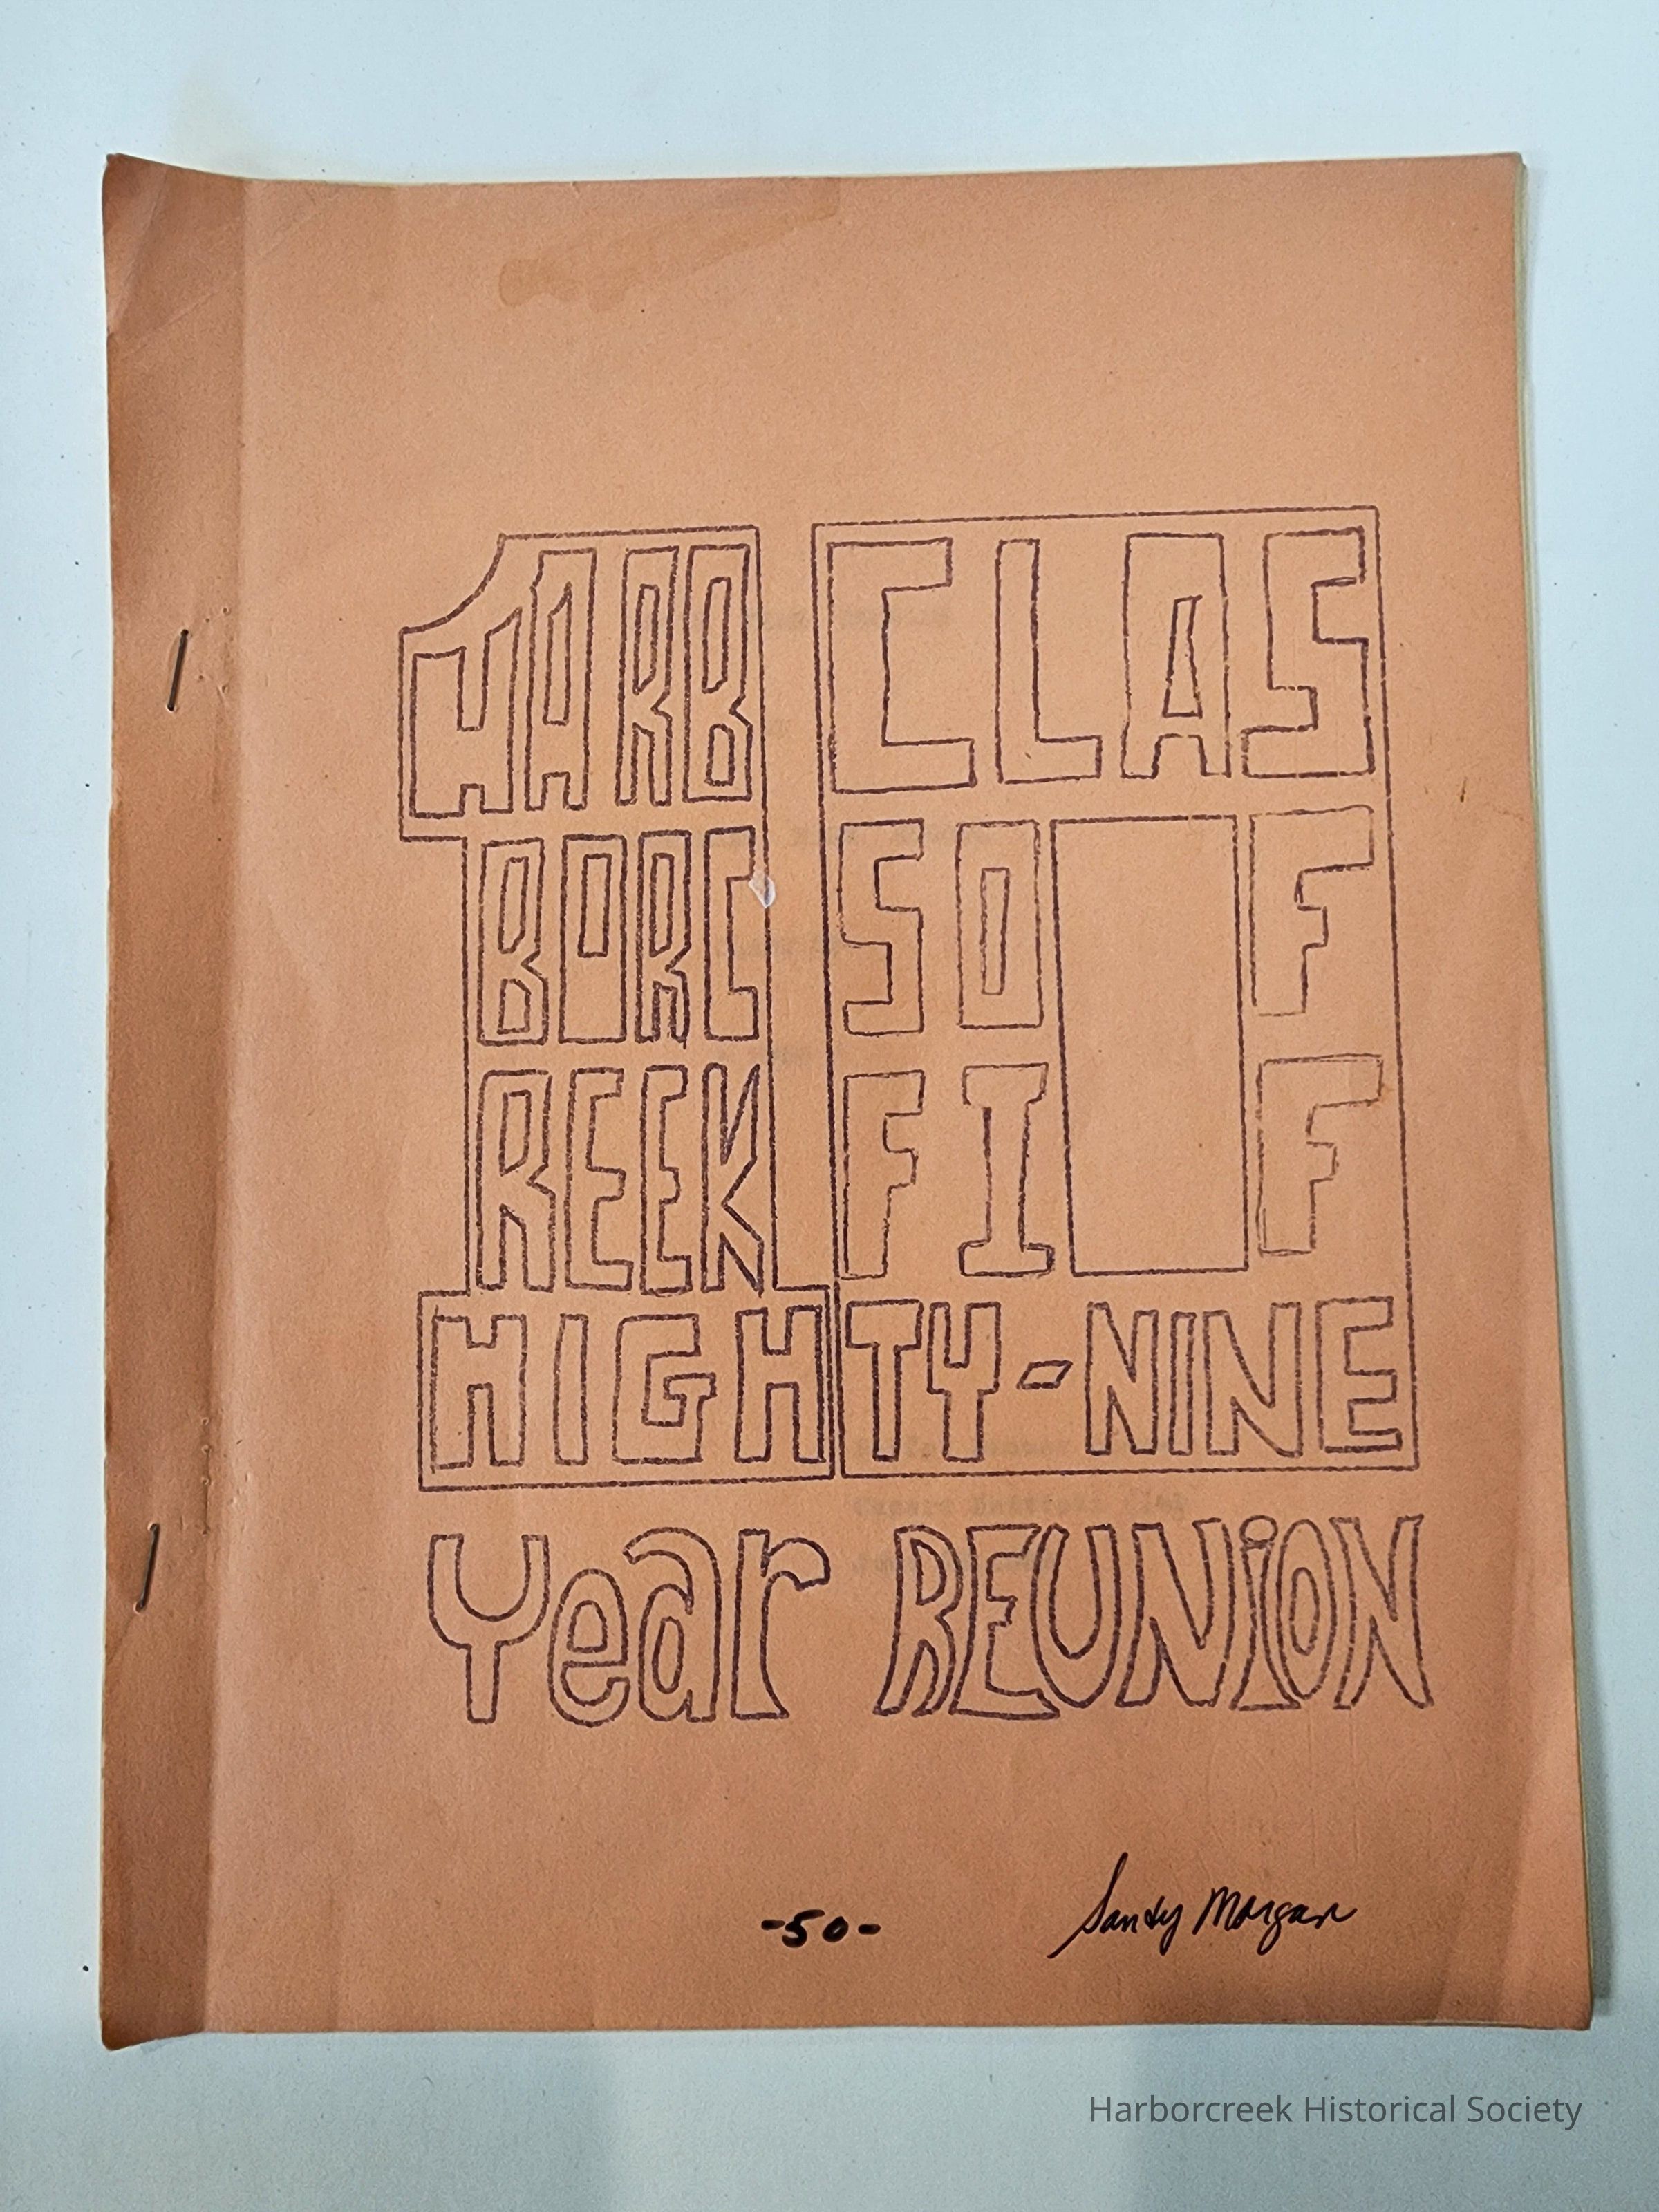 HARB
BORC
REEK
HIGH
CLAS
S O F
FI F
TY-NINE
Year REUNION
-50-
Sandy Morgan
Harborcreek Historical Society